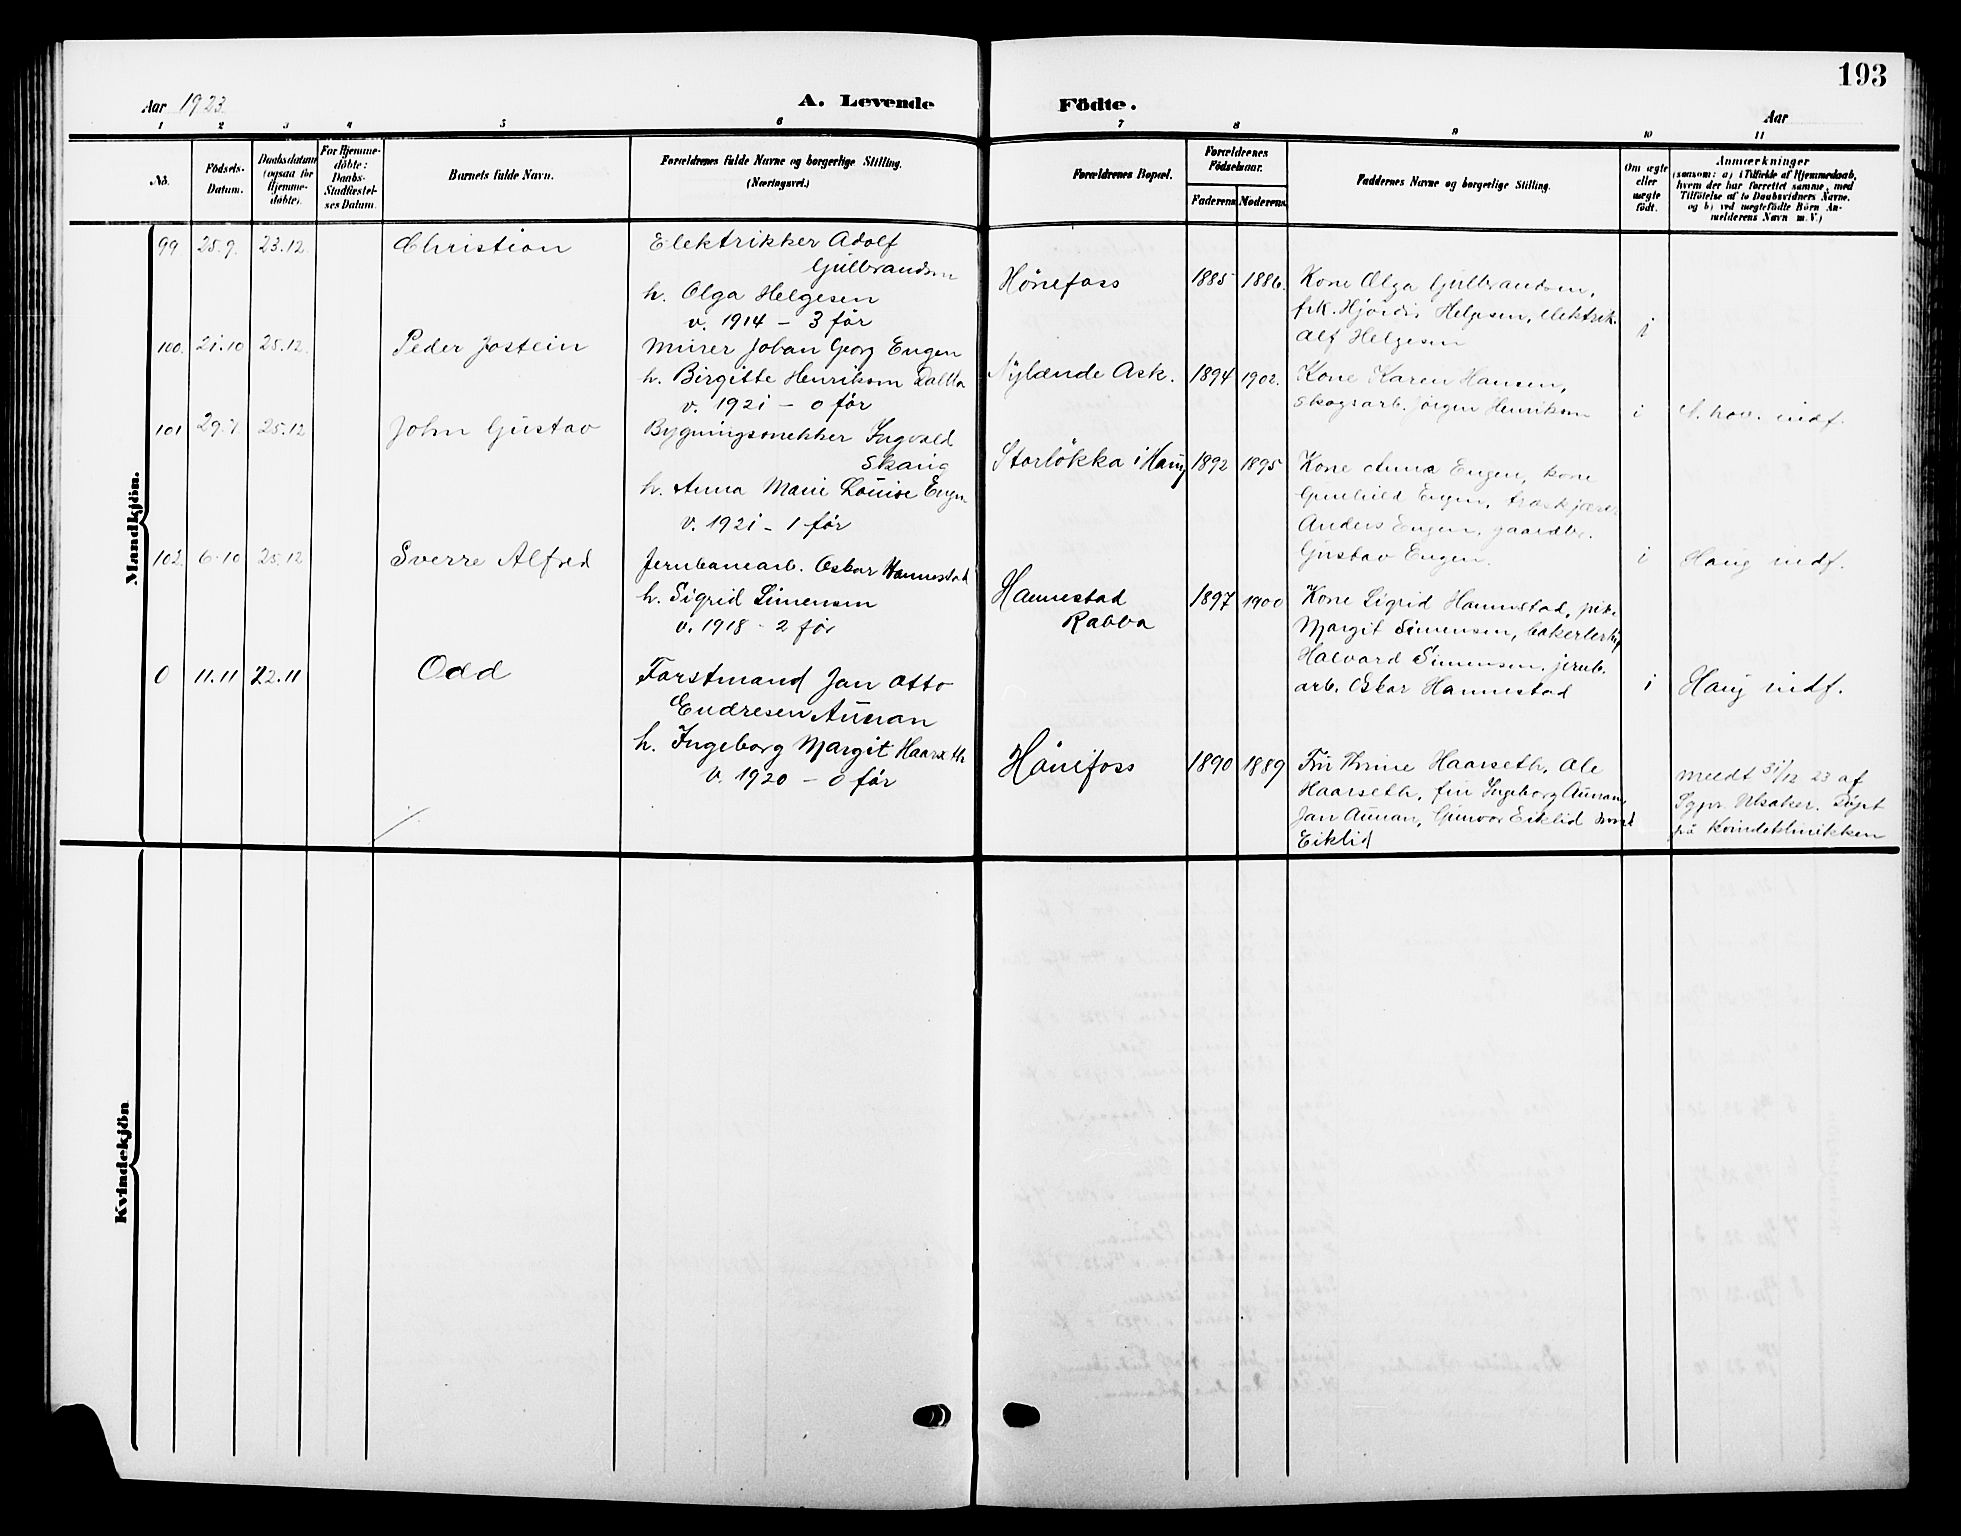 193
Aar 1923
A. Levende Födte.
Aar
1 2 3 4 5 6 7 8 9 10 11
No.
Födsels-Datum.
Daabsdatum (ogsaa for Hjemme-döbte).
For Hjemme-döbte: Daabs-Stadfæstel-ses Datum.
Barnets fulde Navn.
Forældrenes fulde Navne og borgerlige Stilling.
(Næringsvei.)
Forældrenes Bopæl.
Forældrenes Födselsaar.
Faderens Moderens
Faddernes Navne og borgerlige Stilling.
Om ægte eller uægte födt.
Anmærkninger
(saasom: a) i Tilfælde af Hjemmedaab,
hvem der har forrettet samme, med
Tilföielse af to Daabsvidners Navne.
og b) ved uægtefödte Börn An-
melderens Navn m. V.)
Mandkjön.
99 25.9. 23.12 Christian
Elektrikker Adolf
Gulbrandsen
h. Olga Helgesen
v. 1914 - 3 før
Hönefoss 1885 1886.
Kone Olga Gulbrandsen,
frk. Hjördis Helgesen, elektrik.
Alf Helgesen i
100. 21.10 25.12. Peder Jostein
Murer Johan Georg Engen
h. Birgitte Henriksen
v. 1921 - 0 før
Nylænde Ask. 1894 1902.
Kone Karen Hansen,
skogsarb. Jörgen Henriksen i
indf.
101 29.7 25.12 John Gustav
Bygningssnekker Ingvald
Skaug
h. Anna Marie Louise Engen
v. 1921 - 1 før
Storløkka i Haug 1892 1895
Kone Anna Engen, kone
Gunhild Engen,
Anders Engen, gaardbr.
Gustav Engen. i Haug indf.
102. 6.10 25.12 Sverre Alfred
Jernbanearb. Oskar Hannestad
h. Sigrid Simensen
v. 1918 - 2 før
Hannestad
Rabba 1897 1900
Kone Sigrid Hannestad, pike
Margit Simensen,
Halvard Simensen, jernb.
arb. Oskar Hannestad i Haug indf.
0 11.11 22.11 Odd
Forstmand Jan Otto
Endresen Aunan
h. Ingeborg Margit Haarseth
v. 1920 - 0 før
Hönefoss 1890 1889
Fru Haarseth, Ole
Haarseth, fru Ingeborg Aunan,
Jan Aunan, Gunvor Eiklid
Eiklid
meldt 31/12 23 af
Sgpr. Ulsaker. Døpt
på Kvindeklinikken
Kvindekjön